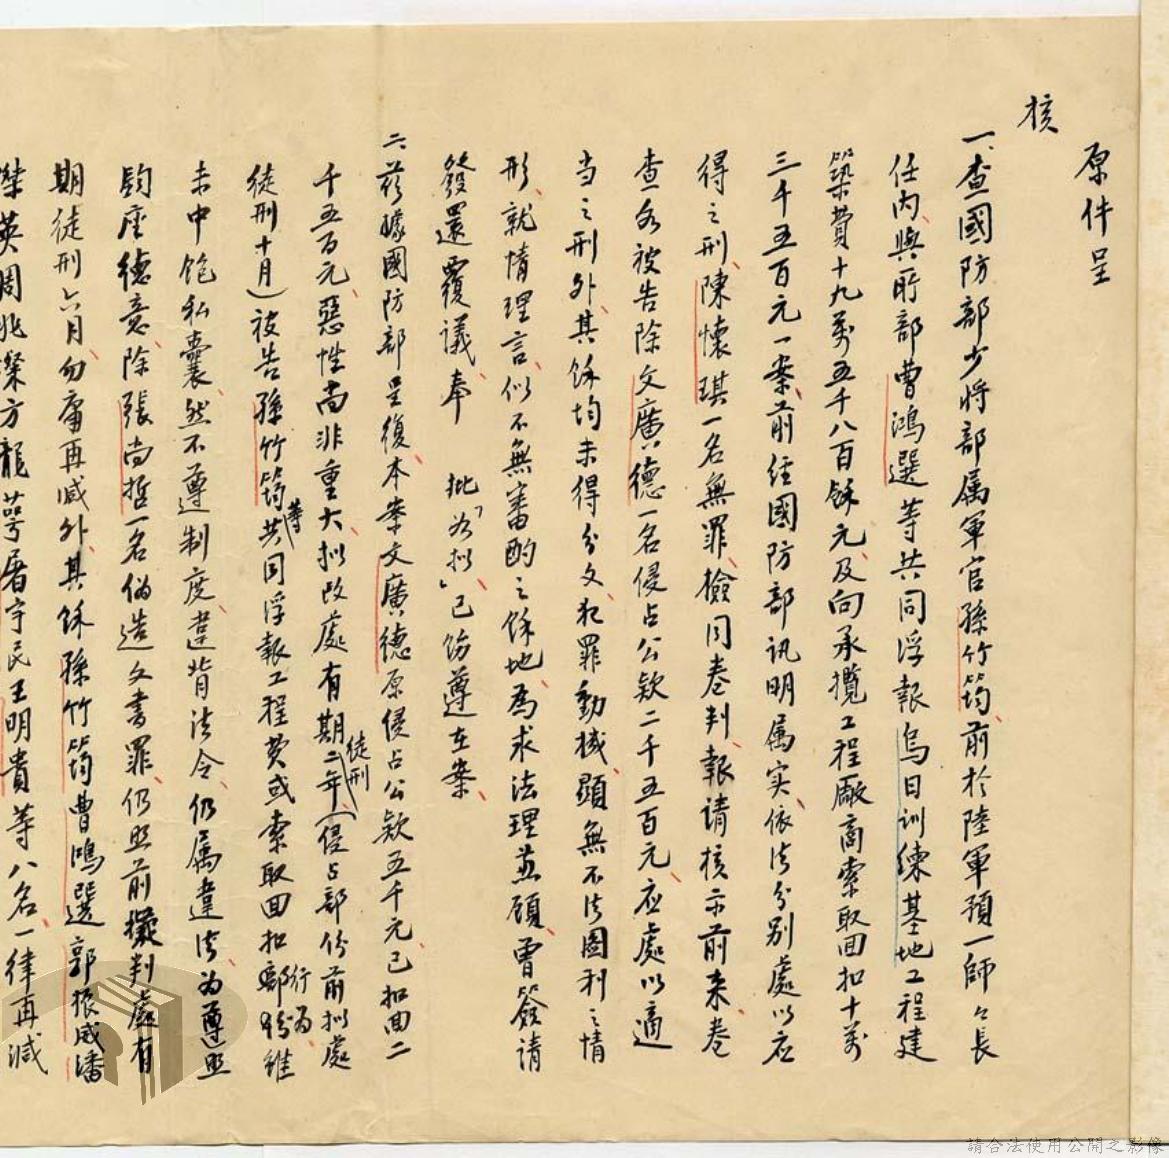 原件呈
核
一、查國防部少將部属軍官孫竹筠、前於陸軍預一師々長
任內、與所部曹鴻選等共同浮報烏日訓練基地工程建
築費十九萬五千八百餘元、及向承攬工程廠商索取回扣十萬
三千五百元一案、前經國防部訊明属实、依法分別處以应
得之刑、陳懷琪一名無罪、檢同卷判、報请核示前来、卷
查各被告除文廣德一名侵占公款二千五百元、应處以適
当之刑外、其餘均未得分文、犯罪動機、顯無不法圖利之情
形、就情理言、似不無審酌之餘地、為求法理兼顧、曾簽请
發還覆議、奉 批「如拟」、已飭遵在案、
二、茲據國防部呈復、本案文廣德原侵占公款五千元、已扣回二
千五百元、惡性尚非重大、拟改處有期徒刑二年、(侵占部份前拟處
徒刑十月)被告孫竹筠等共同浮報工程費或索取回扣行為、雖
未中飽私囊、然不遵制度、違背法令、仍属違法、为遵照
鈞座德意、除張尚哲一名偽造文書罪、仍照前擬判處有
期徒刑六月、勿庸再減外、其餘孫竹筠曹鴻選郭振威潘
燊英周兆燦方龍萼屠宇民王明貴等八名、一律再減
請合法使用公開之影像